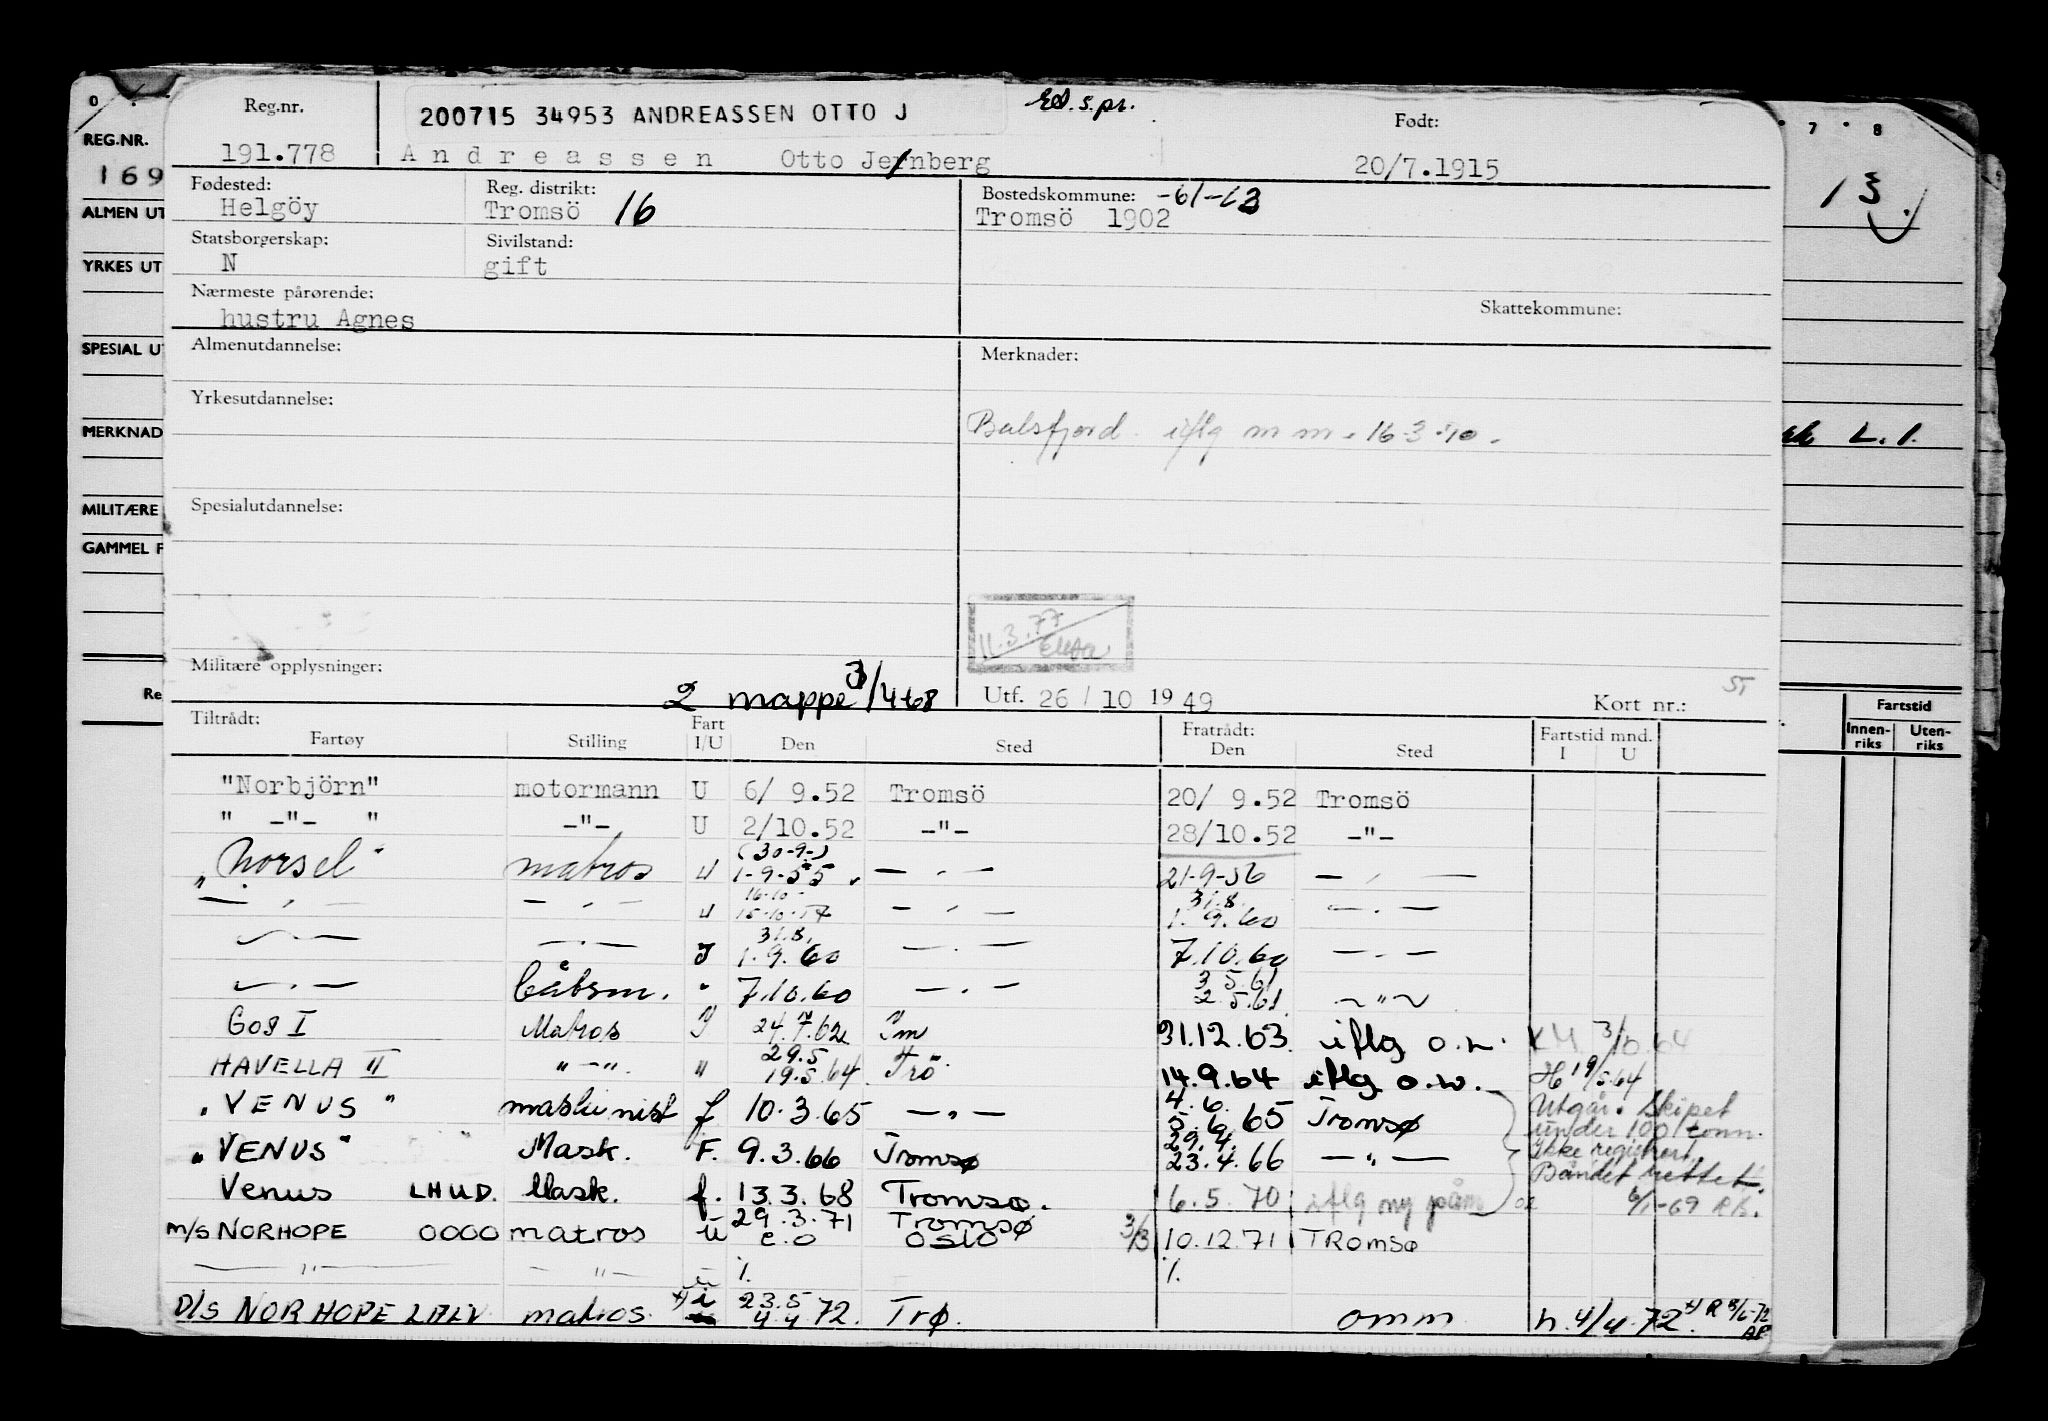 0 7 8
Reg.nr. 200715 34953 ANDREASSEN OTTO J Ed.s.pr. Født:
191.778 Andreassen Otto Jernberg 20/7.1915
REG.NR.
169
13.
Fødested: Reg. distrikt: Bostedskommune: -61-63
Helgöy Tromsö 16 Tromsö 1902
ALMEN UT
Statsborgerskap: Sivilstand:
N gift
YRKES UT
Nærmeste pårørende: Skattekommune:
hustru Agnes
SPESIAL UT
Almenutdannelse: Merknader:
Yrkesutdannelse:
Balsfjord. iflg m m. 16.3.70.
MERKNAD L.1.
Spesialutdannelse:
MILITÆRE
GAMMEL F
11.3.77
Militære opplysninger:
2 mappe 3/4-68 Utf. 26/10 1949 Kort nr.:
Re Fartstid
Innen-riks Uten-riks
Tiltrådt: Fratrådt: Fartstid mnd.
Fartøy Stilling Fart I/U Den Sted Den Sted I U
"Norbjörn" motormann U 6/ 9.52 Tromsö 20/ 9.52 Tromsö
" -"- " -"- U 2/10.52 -"- 28/10.52 -"-
(30-9-)
"Norsel" matros U 1-9-55. — " — 21-9-56 — " —
16-10- 31.8.
— " — — " — U 15-10-57 — " — 1. 9.60 — " —
31.8.
— " — — " — J 1.9.60 — " — 7.10.60 — " —
3.5.61
— " — båtsm. " 7.10.60 — " — 2.5.61 ~ " ~
Gog I Matros 24.7.62 31.12.63. iflg o.w. 3/10.64
29.5
HAVELLA II " — ". " 19.5.64. Trö 14.9.64 iflg o.w. H 19/5.64
4.6.
"VENUS" maskinist f 10.3.65 — " — 5.6.65 Tromsø Utgår. Skipet
under 100 tonn.
29.4.
"VENUS" Mask. F. 9.3.66 Tromsø 23.4.66 — " — Ikke registrert.
Båndet rettet.
Venus LHUD. Mask. f. 13.3.68 Tromsø. 6.5.70 iflg ny påm 6/1-69
29.3.71 Tromsø
m/s NORHOPE 0000 matros u e.o OSLO 3/3 10.12.71 TRomsø
— " — — " — u 1. 1.
23.5
D/S NORHOPE matros x) i 4.4.72. Trø. omm h.4/4.72 x) R 8/6-72